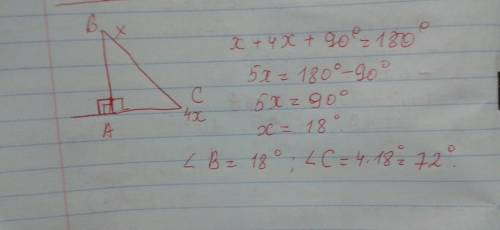 B x
C
4x
A
x + 4x + 90° = 180°
5x = 180° - 90°
5x = 90°
x = 18°
∠B = 18° ; ∠C = 4·18° = 72°.